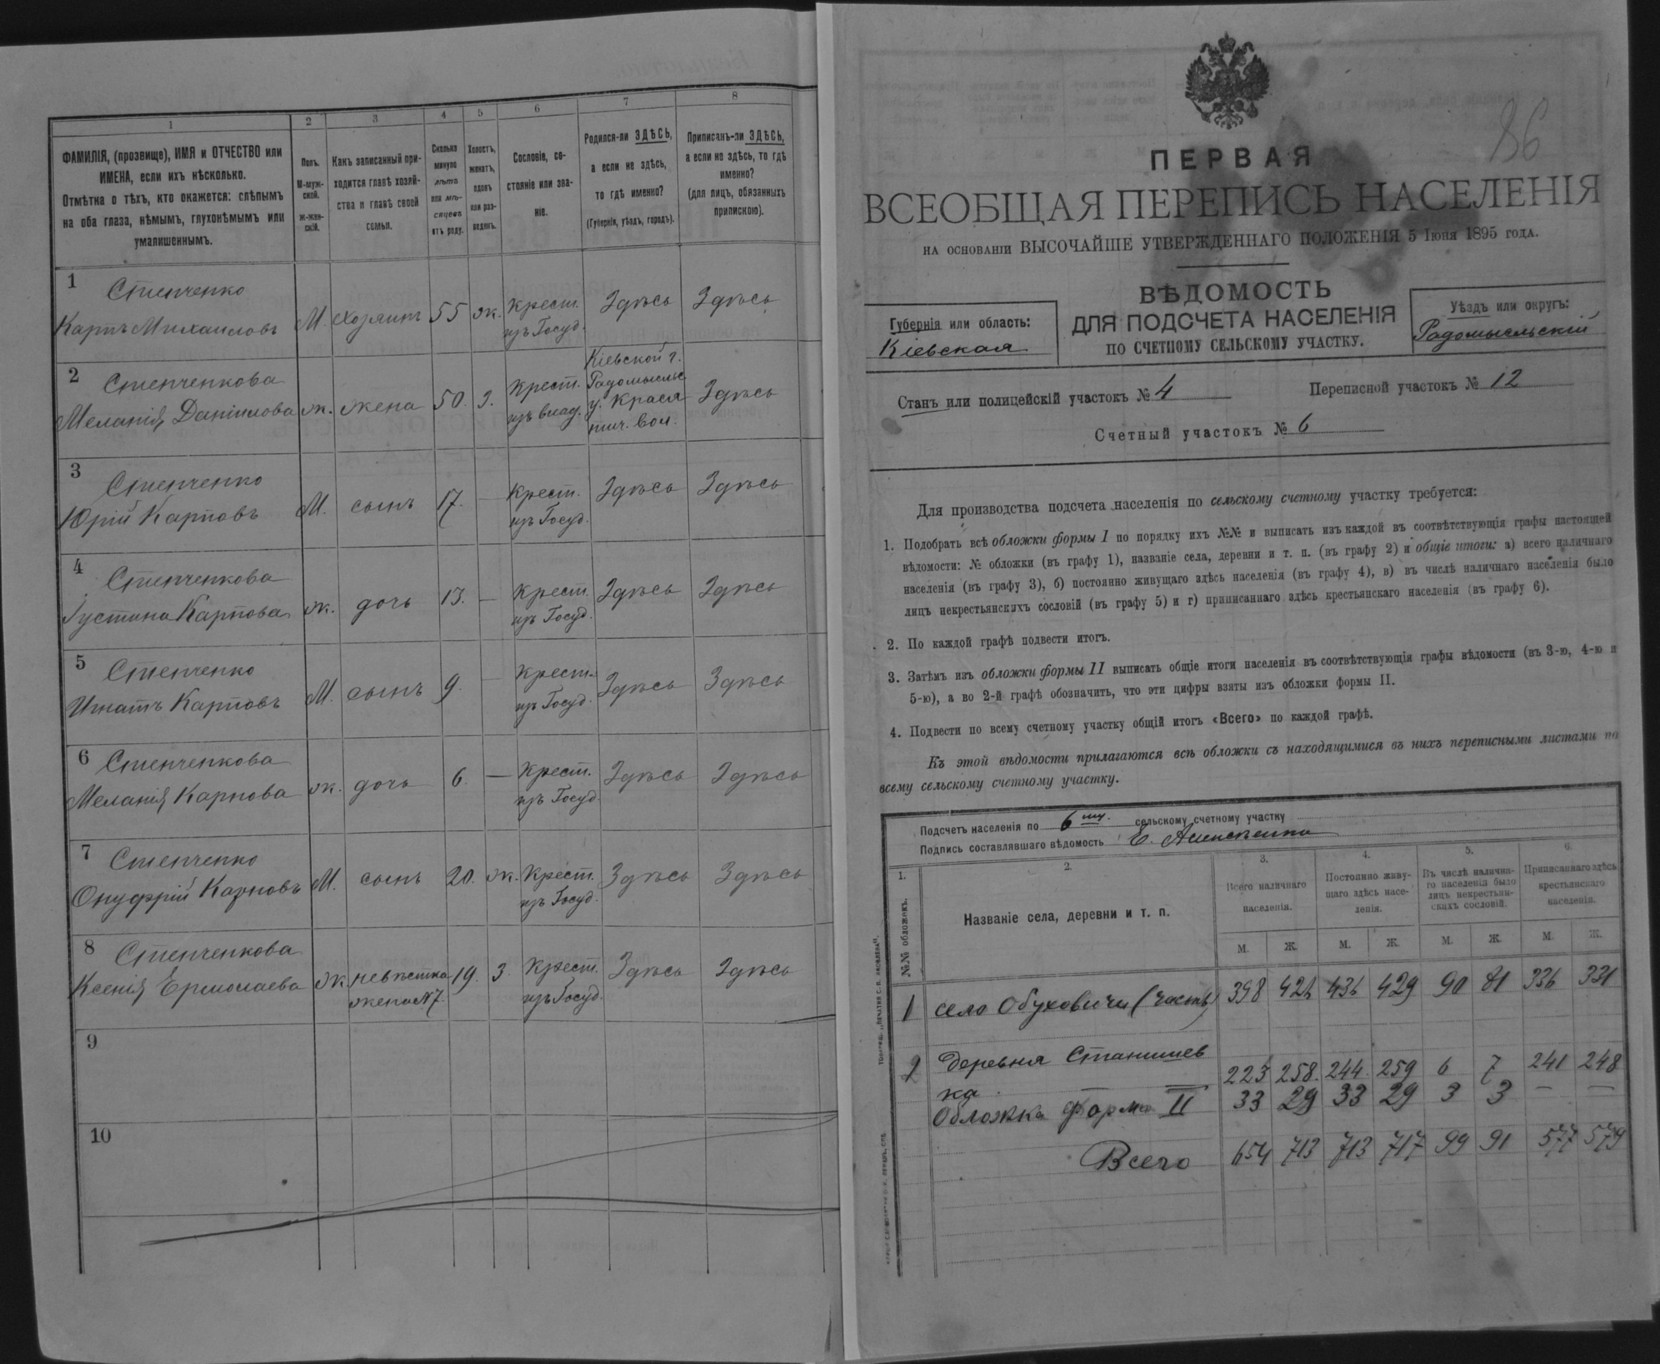 1
2
3
4
5
6
7
8
ФАМИЛІЯ, (прозвище), ИМЯ и ОТЧЕСТВО или
ИМЕНА, если ихъ нѣсколько.
Отмѣтка о тѣхъ, кто окажется: слѣпымъ
на оба глаза, нѣмымъ, глухонѣмымъ или
умалишеннымъ.
Полъ.
М-муж-
ской.
Ж-жен-
скій.
Какъ записанный при-
ходится главѣ хозяй-
ства и главѣ своей
семьи.
Сколько
минуло
лѣтъ
или мѣ-
сяцевъ
отъ роду.
Холостъ,
женатъ,
вдовъ
или раз-
веденъ.
Сословіе, со-
стояніе или зва-
ніе.
Родился-ли ЗДѢСЬ,
а если не здѣсь,
то гдѣ именно?
(Губернія, уѣздъ, городъ).
Приписанъ-ли ЗДѢСЬ,
а если не здѣсь, то гдѣ
именно?
(для лицъ, обязанныхъ
припискою).
1
Стенченко
Карпъ Михаиловъ
М.
хозяинъ
55
ж.
Крест.
изъ Госуд.
Здѣсь
Здѣсь
2
Стенченкова
Меланія Даніилова
ж.
жена
50
з.
Крест.
изъ влад.
Кіевской г.
Радомысльс
у. Красят
тич. вол.
Здѣсь
3
Стенченко
Юрій Карповъ
М.
сынъ
17.
—
Крест.
изъ Госуд.
Здѣсь
Здѣсь
4
Стенченкова
Густина Карпова
ж.
дочь
13.
—
Крест.
изъ Госуд.
Здѣсь
Здѣсь
5
Стенченко
Игнатъ Карповъ
М.
сынъ
9.
—
Крест.
изъ Госуд.
Здѣсь
Здѣсь
6
Стенченкова
Меланія Карпова
ж.
дочь
6
—
Крест.
изъ Госуд.
Здѣсь
Здѣсь
7
Стенченко
Онуфрій Карповъ
М.
сынъ
20.
ж.
Крест.
изъ Госуд.
Здѣсь
Здѣсь
8
Стенченкова
Ксенія Ермолаева
ж.
невѣстка
жена №7.
19.
з
Крест.
изъ Госуд.
Здѣсь
Здѣсь
9
10
86
ПЕРВАЯ
ВСЕОБЩАЯ ПЕРЕПИСЬ НАСЕЛЕНІЯ
НА ОСНОВАНІИ ВЫСОЧАЙШЕ УТВЕРЖДЕННАГО ПОЛОЖЕНІЯ 5 Іюня 1895 года.
ВѢДОМОСТЬ
ДЛЯ ПОДСЧЕТА НАСЕЛЕНІЯ
ПО СЧЕТНОМУ СЕЛЬСКОМУ УЧАСТКУ.
Губернія или область:
Кіевская
Уѣздъ или округъ:
Радомысльскій
Станъ или полицейскій участокъ № 4
Переписной участокъ № 12
Счетный участокъ № 6
Для производства подсчета населенія по сельскому счетному участку требуется:
1. Подобрать всѣ обложки формы I по порядку ихъ №№ и выписать изъ каждой въ соотвѣтствующія графы настоящей
вѣдомости: № обложки (въ графу 1), названіе села, деревни и т. п. (въ графу 2) и общіе итоги: а) всего наличнаго
населенія (въ графу 3), б) постоянно живущаго здѣсь населенія (въ графу 4), в) въ числѣ наличнаго населенія было
лицъ некрестьянскихъ сословій (въ графу 5) и г) приписаннаго здѣсь крестьянскаго населенія (въ графу 6).
2. По каждой графѣ подвести итогъ.
3. Затѣмъ изъ обложки формы II выписать общіе итоги населенія въ соотвѣтствующія графы вѣдомости (въ 3-ю, 4-ю и
5-ю), а во 2-й графѣ обозначить, что эти цифры взяты изъ обложки формы II.
4. Подвести по всему счетному участку общій итогъ «Всего» по каждой графѣ.
Къ этой вѣдомости прилагаются всѣ обложки съ находящимися въ нихъ переписными листами по
всему сельскому счетному участку.
Подсчетъ населенія по 6 му. сельскому счетному участку
Подпись составлявшаго вѣдомость Е.
1.
2.
3.
4.
5.
6.
№№ обложекъ.
Названіе села, деревни и т. п.
Всего наличнаго
населенія.
Постоянно живу-
щаго здѣсь насе-
ленія.
Въ числѣ налична-
го населенія было
лицъ некрестьян-
скихъ сословій.
Приписаннаго здѣсь
крестьянскаго
населенія.
М. Ж. М. Ж. М. Ж. М. Ж.
1 село Обуховичи (часть) 398 426 436 429 90 81 336 331
2 деревня Станишев
ка 223 258. 244 259 6 7 241 248
Обложка форма II 33 29 33 29 3 3 — —
Всего 654 713 713 717 99 91 577 579